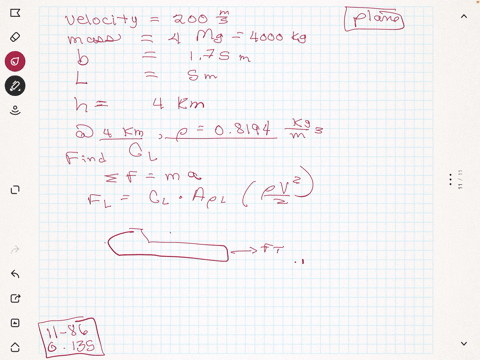 velocity = 200 m/3
plane
mass = 4 Mg = 4000 kg
b = 1.75 m
L = 5m
h = 4 km
@ 4 km, ρ = 0.8194 kg/m3
Find CL
ΣF = ma
FL = CL · ApL (ρV²/2)
FT
11-86
6.135
11/11